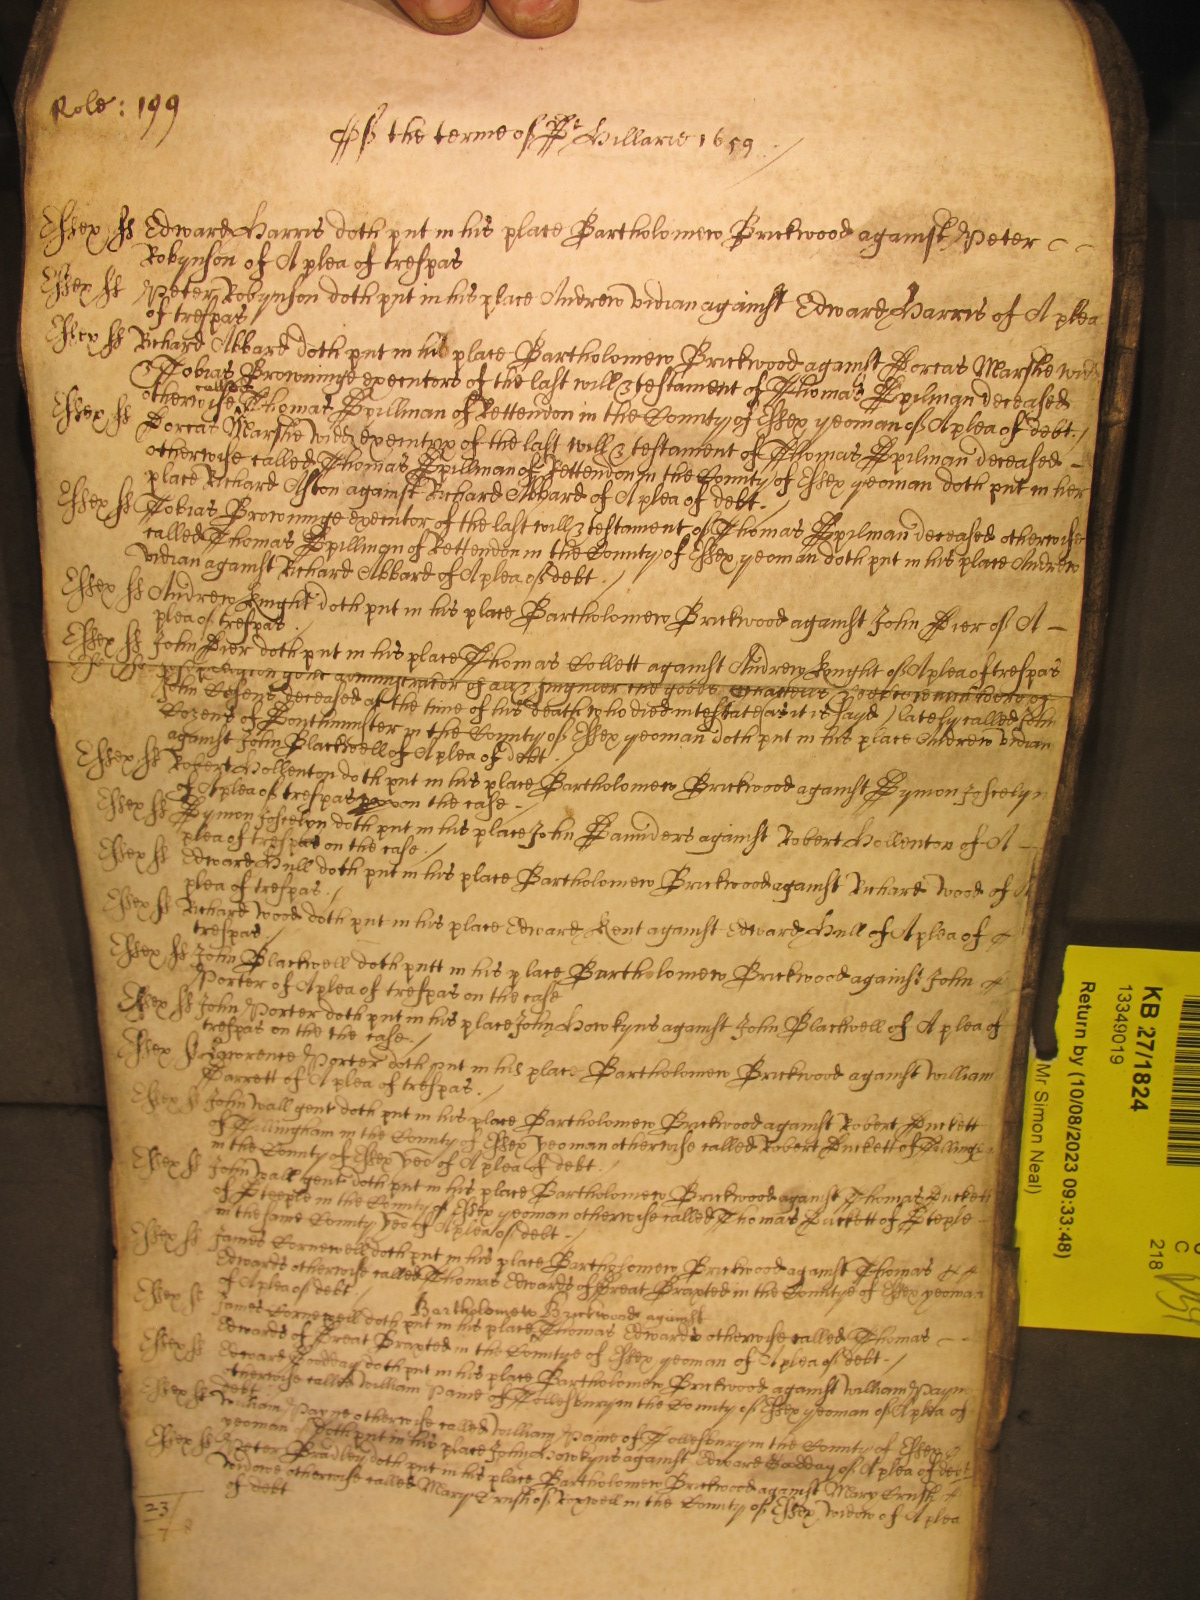 Role: 199
Of the terme of St Hillarie 1659
Essex ss Edward Harris doth put in his place Bartholomew Brickwood against Peter
Robynson of A plea of trespas
Essex ss Peter Robynson doth put in his place Andrew Vidian against Edward Harris of A plea
of trespas
Essex ss Richard Abbard doth put in his place Bartholomew Brickwood against Dorcas Marshe widd
& Tobias Browninge executors of the last will & testament of Thomas Spilman deceased
otherwise called Thomas Spillman of Rettendon in the County of Essex yeoman of A plea of debt
Essex ss Dorcas Marshe widd executrix of the last will & testament of Thomas Spilman deceased
otherwise called Thomas Spillman of Rettendon in the County of Essex yeoman doth put in her
place Richard Aston against Richard Abbard of A plea of debt
Essex ss Tobias Browninge executor of the last will & testament of Thomas Spilman deceased otherwise
called Thomas Spillman of Rettendon in the County of Essex yeoman doth put in his place Andrew
Vidian against Richard Abbard of A plea of debt
Essex ss Andrew Knight doth put in his place Bartholomew Brickwood against John Pier of A
plea of trespas
Essex ss John Pier doth put in his place Thomas Collett against Andrew Knight of A plea of trespas
gent administrator of all & singuler the goods Chattells
John Cosens deceased att the time of his death who died intestate (as it is sayd) lately called John
Cozens of Southminster in the County of Essex yeoman doth put in his place Andrew Vidian
against John Blackwell of A plea of debt
Essex ss Robert Hollenton doth put in his place Bartholomew Brickwood against Symon Joscelyn
of A plea of trespas upon the case
Essex ss Symon Joscelyn doth put in his place John Saunders against Robert Hollenton of A
plea of trespas on the case
Essex ss Edward Hull doth put in his place Bartholomew Brickwood against Richard Wood of A
plea of trespas
Essex ss Richard Wood doth put in his place Edward Kent against Edward Hull of A plea of
trespas
Essex ss John Blackwell doth putt in his place Bartholomew Brickwood against John
Porter of A plea of trespas on the case
Essex ss John Porter doth put in his place John Hawkyns against John Blackwell of A plea of
trespas on the the case
Essex ss Lawrence Porter doth put in his place Bartholomew Brickwood against William
Barrett of A plea of trespas
Essex ss John Wall gent doth put in his place Bartholomew Brickwood against Robert Duckett
of Tillingham in the County of Essex yeoman otherwise called Robert Duckett of
in the County of Essex yeo of A plea of debt
Essex ss John Wall gent doth put in his place Bartholomew Brickwood against Thomas Duckett
of Steeple in the County of Essex yeoman otherwise called Thomas Duckett of Steple
in the same County yeo of A plea of debt
Essex ss James Cornewell doth put in his place Bartholomew Brickwood against Thomas
Edwards otherwise called Thomas Edwards of Great Braxted in the Countye of Essex yeoman
of A plea of debt
Bartholomew Brickwood against
Essex ss James Cornewell doth put in his place Thomas Edwards otherwise called Thomas
Edwards of Great Braxted in the Countye of Essex yeoman of A plea of debt
Essex ss Edward Gooday doth put in his place Bartholomew Brickwood against William Payne
otherwise called William Paine of Tollesbury in the County of Essex yeoman of A plea of
debt
Essex ss William Payne otherwise called William Paine of Tollesbury in the County of Essex
yeoman doth put in his place John Hawkyns against Edward Gooday of A plea of debt
Essex ss Peter Bradley doth put in his place Bartholomew Brickwood against Mary Crush
widowe otherwise called Mary Crush of Roxwell in the County of Essex widow of A plea
of debt
23
KB 27/1824
13349019
Return by (10/08/2023 09:33:48)
Mr Simon Neal)
C
218